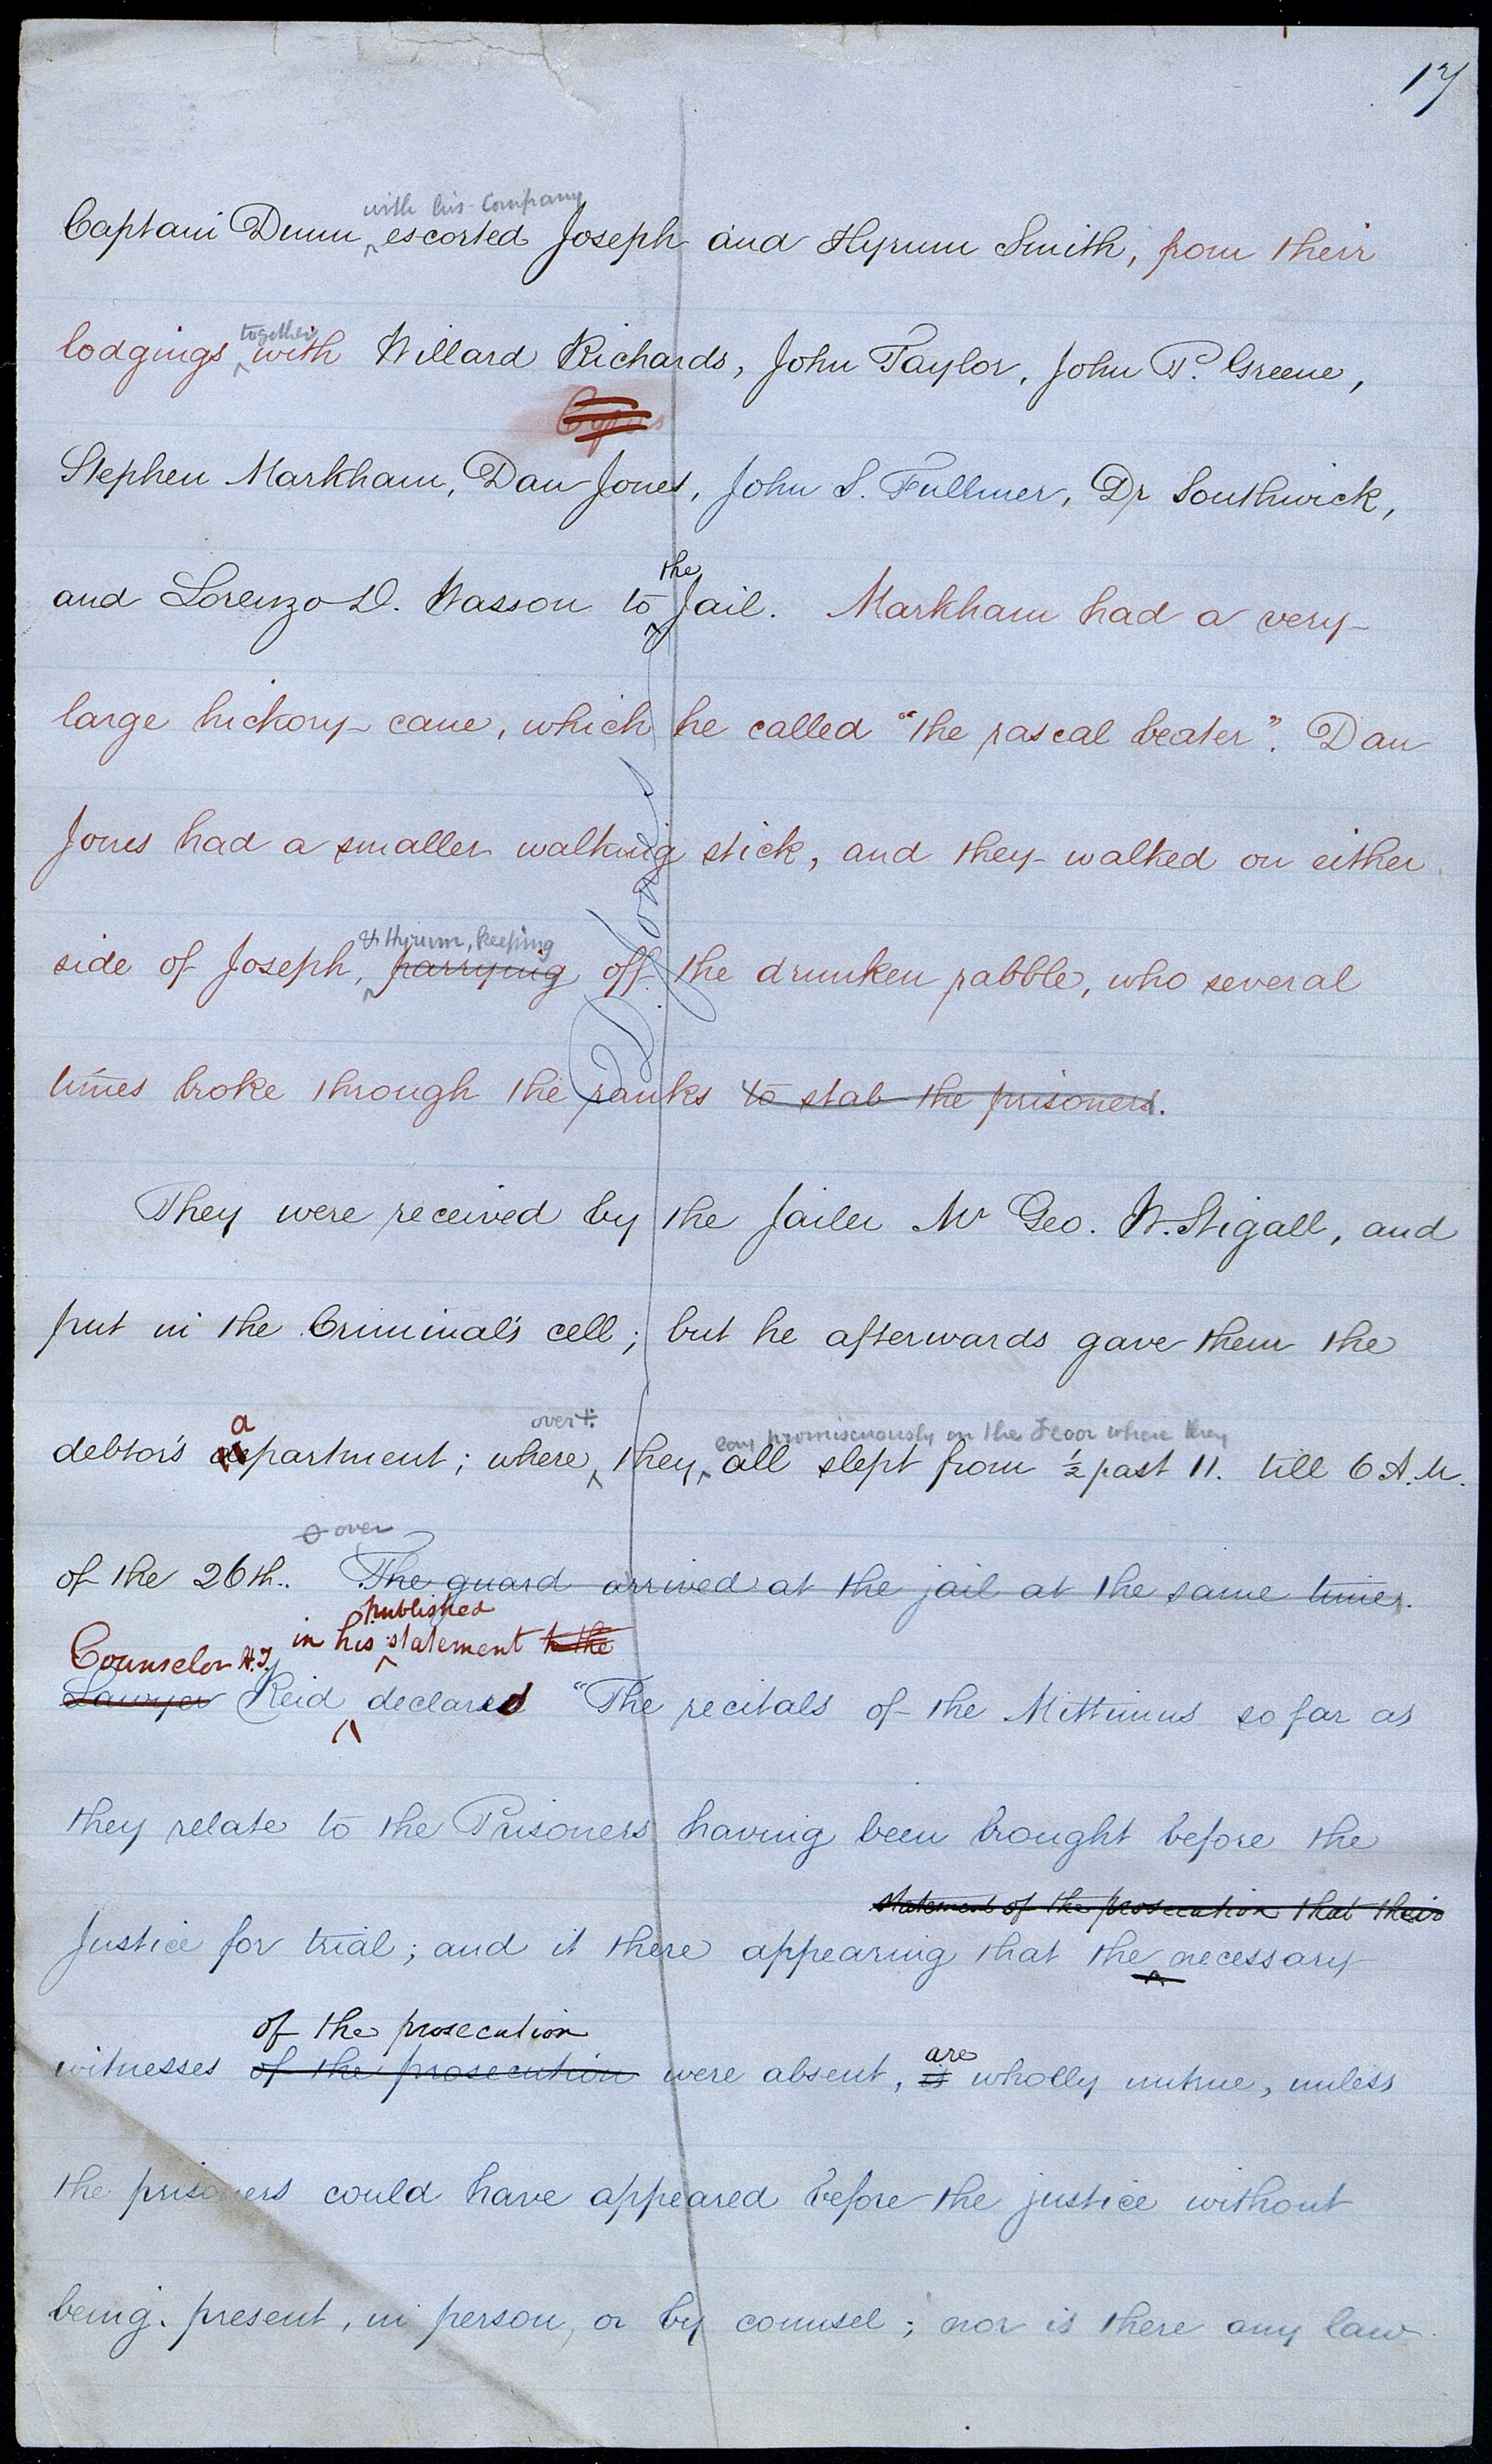 17
with his company
Captain Dunn escorted Joseph and Hyrum Smith, from their
together
lodgings with Willard Richards, John Taylor, John P. Greene,
Cyrus
Stephen Markham, Dan Jones, John S. Fullmer, Dr Southwick,
the
and Lorenzo D. Wasson to Jail. Markham had a very
large hickory cane, which he called "the rascal beater". Dan
Jones had a smaller walking stick, and they walked on either
& Hyrum, keeping
side of Joseph, parrying off the drunken rabble, who several
times broke through the ranks to stab the prisoners.
D. Jones
They were received by the Jailer Mr Geo. W. Stigall, and
put in the Criminal's cell; but he afterwards gave them the
a over promiscuously on the floor where they
debtor's apartment; where they all slept from ½ past 11. till 6 A.M.
over
of the 26th. The guard arrived at the jail at the same time.
published
in his statement to the
Counselor H.T.
Lawyer Reid declared "The recitals of the Mittimus so far as
they relate to the Prisoners having been brought before the
statement of the prosecution that their
Justice for trial; and it there appearing that the necessary
of the prosecution are
witnesses of the prosecution were absent, is wholly untrue, unless
the prisoners could have appeared before the justice without
being present, in person, or by counsel; nor is there any law